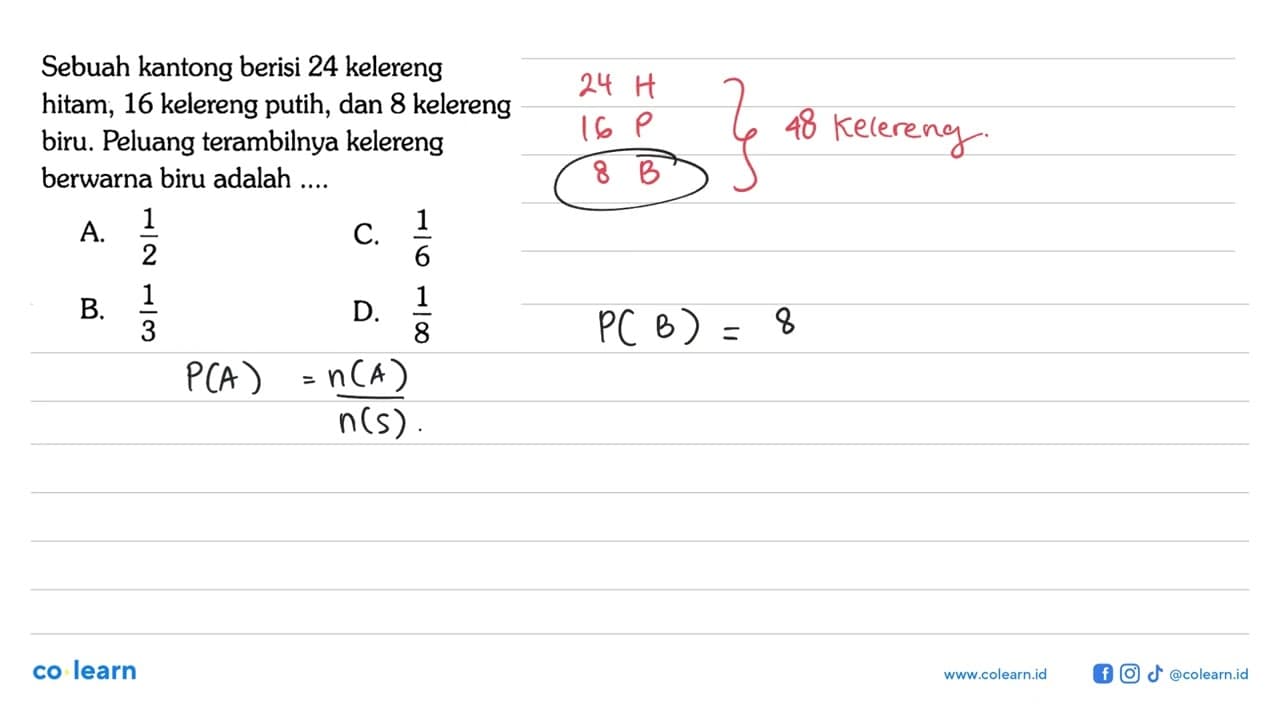 Sebuah kantong berisi 24 kelereng
hitam, 16 kelereng putih, dan 8 kelereng
biru. Peluang terambilnya kelereng
berwarna biru adalah ....
A. 1/2
C. 1/6
B. 1/3
D. 1/8
24 H
16 P
8 B
48 Kelereng.
P(B) = 8
P(A) = n(A)/n(S).
co learn
www.colearn.id
@colearn.id